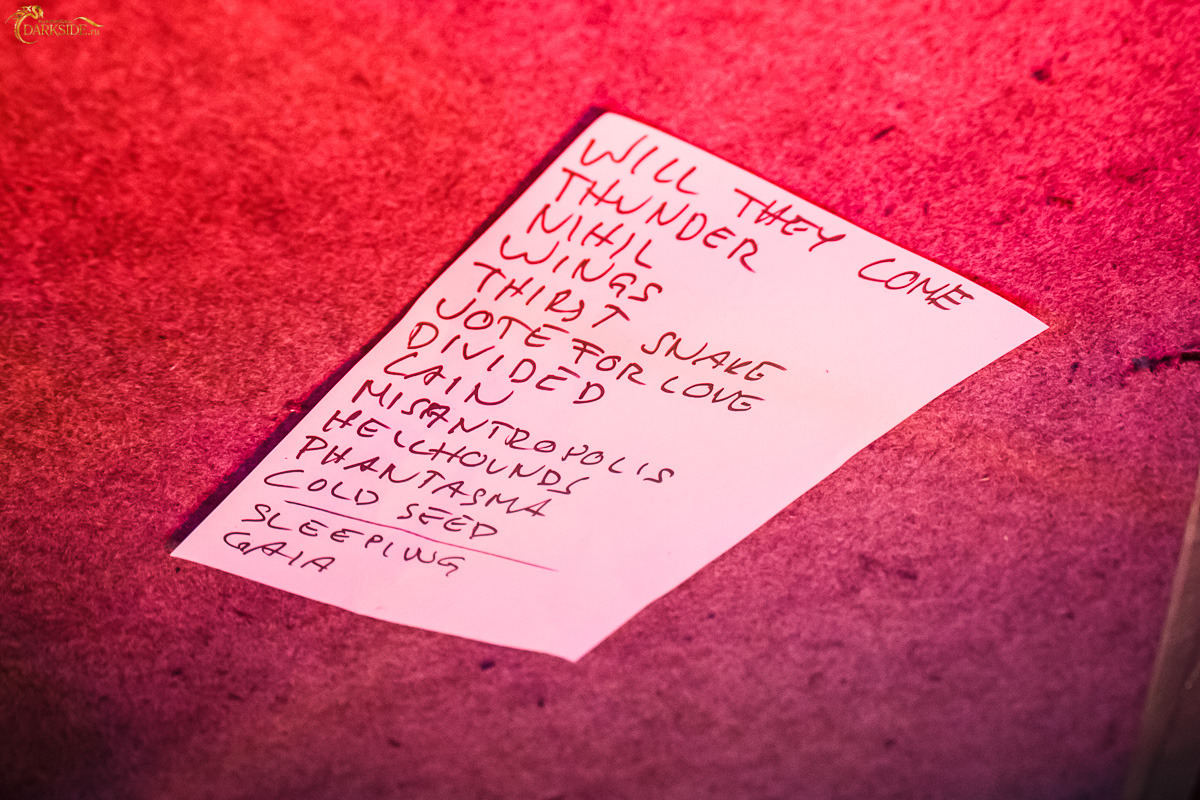 DARKSIDE.ru
WILL THEY COME
THUNDER
NIHIL
WINGS
THIRST SNAKE
VOTE FOR LOVE
DIVIDED
CAIN
MISANTROPOLIS
HELLHOUNDS
PHANTASMA
COLD SEED
SLEEPING
GAIA